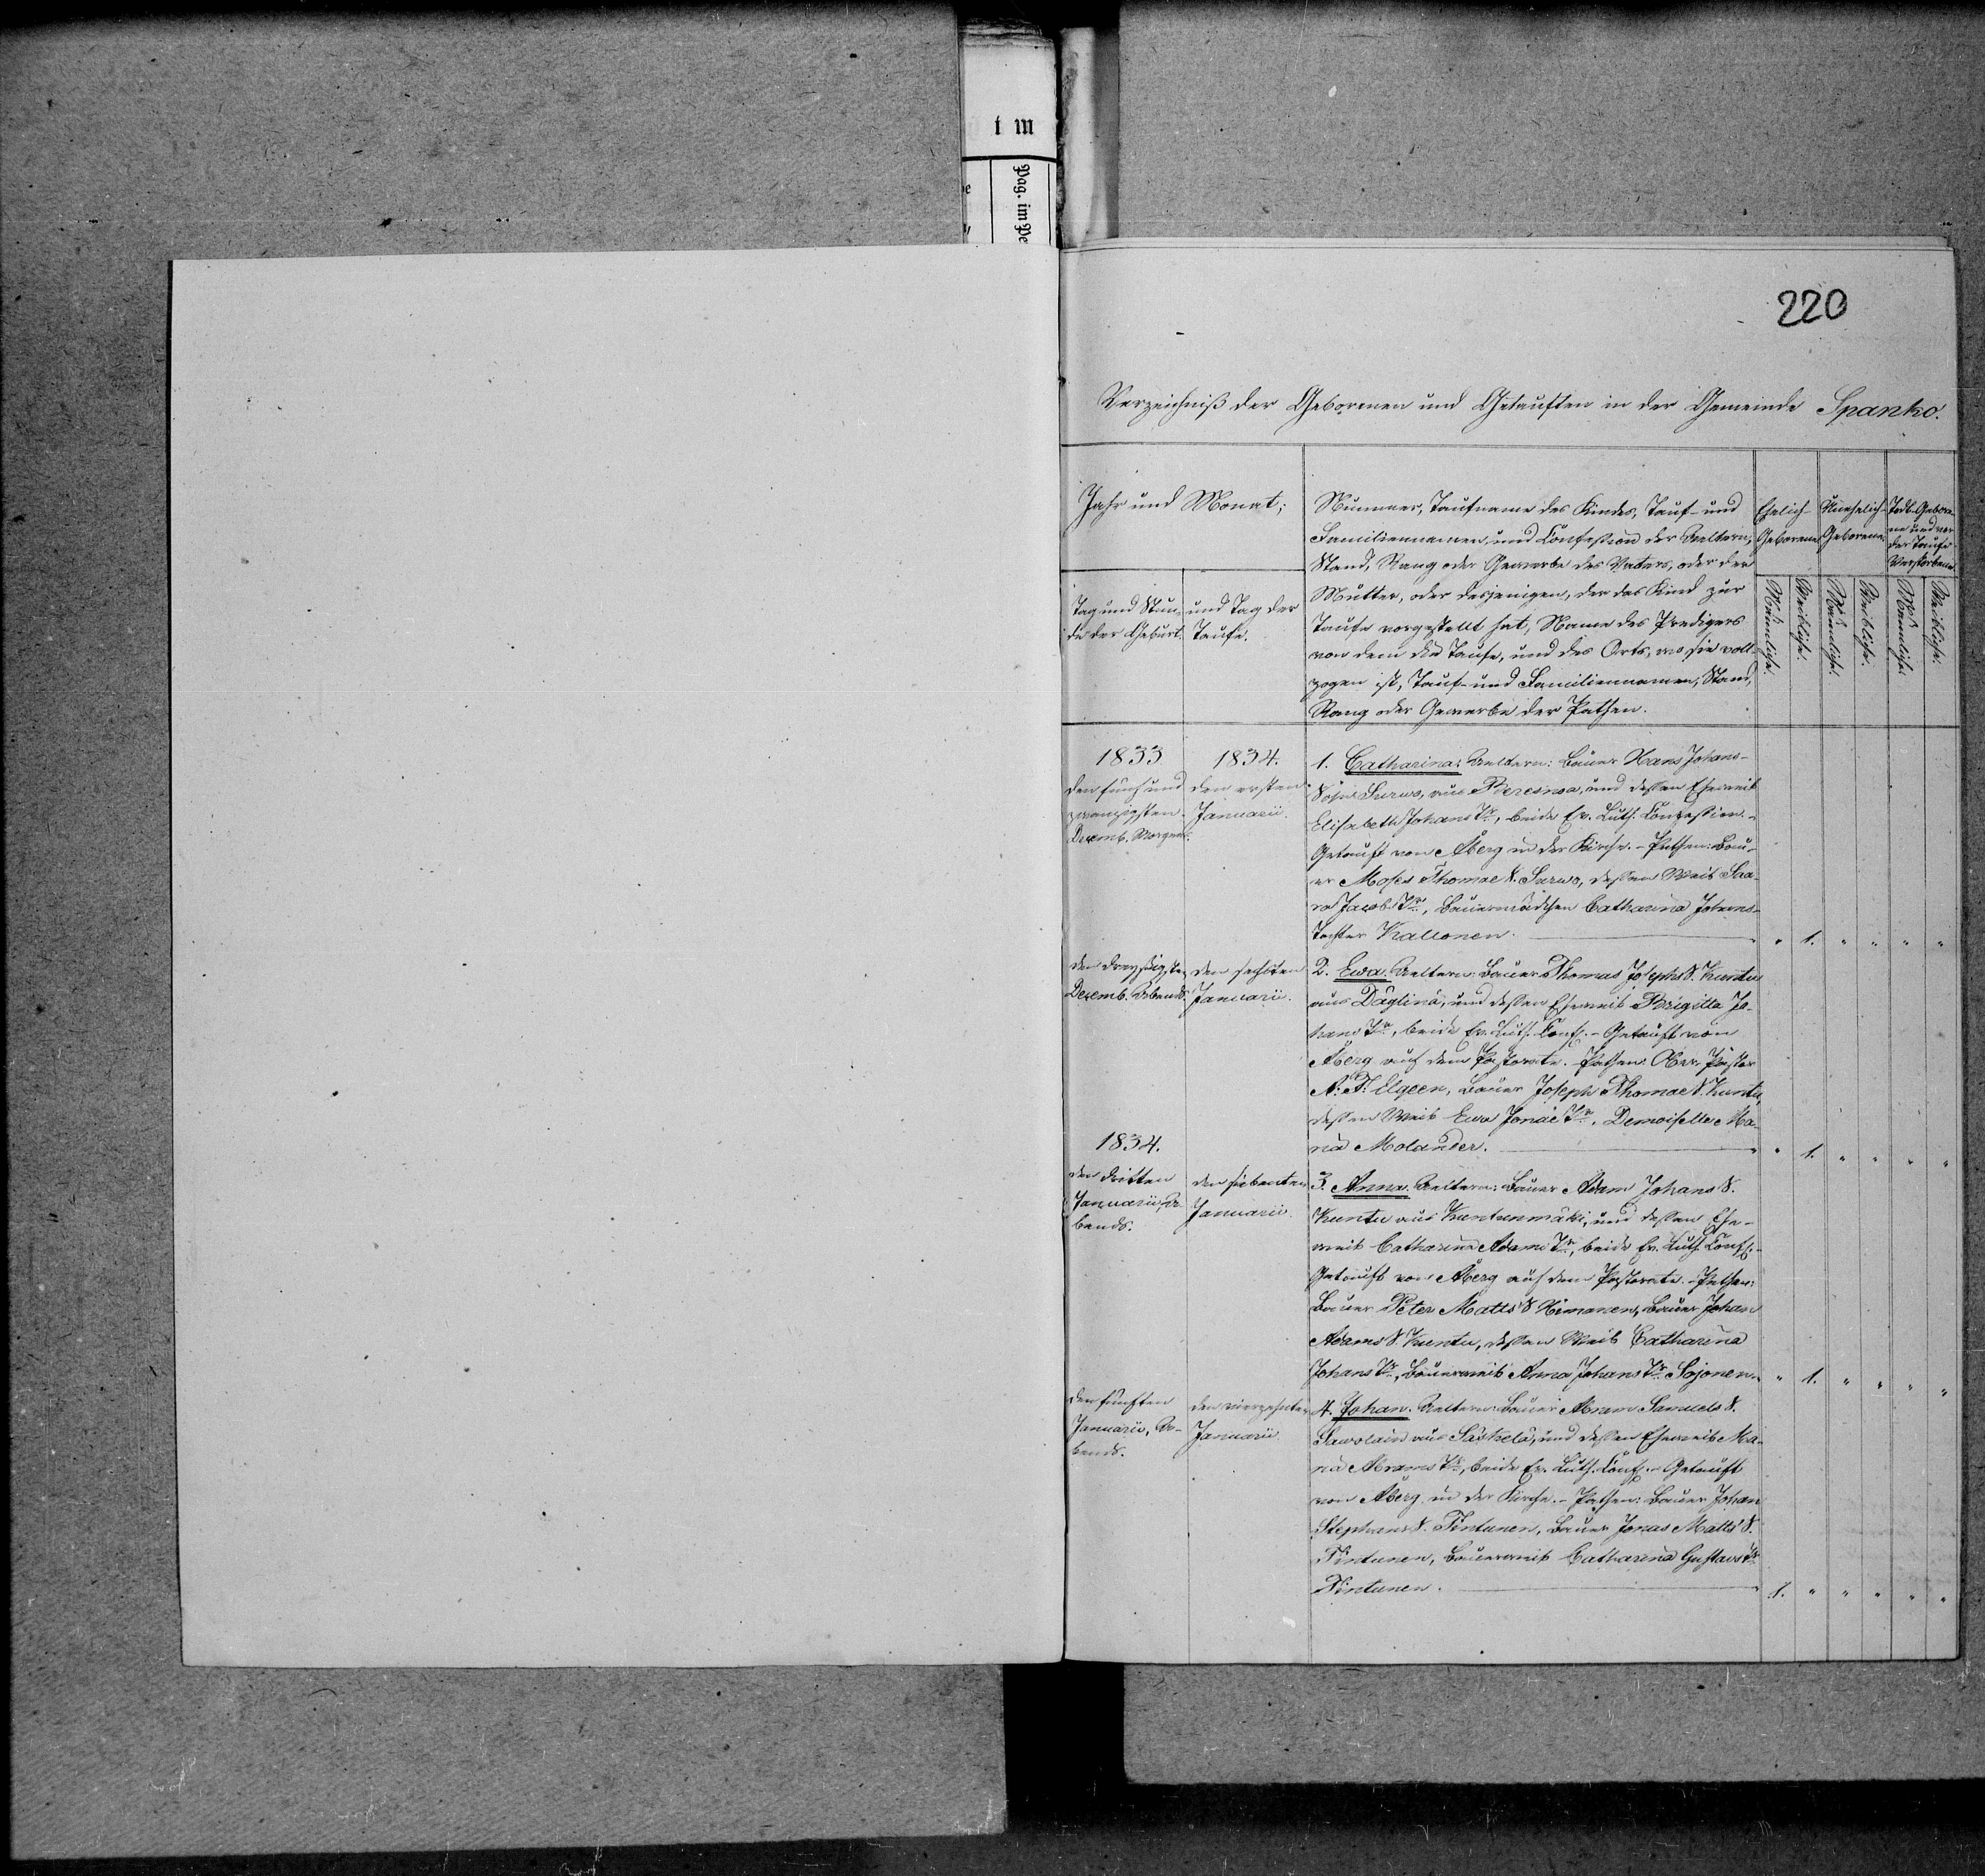 m i
Pag. im Pe
220
Verzeichniß der Geborenen und Getauften in der Gemeinde Spanko.
Jahr und Monat;
Tag und Stun-
de der Geburt.
und Tag der
Taufe.
Nummer, Taufname des Kindes, Tauf- und
Familiennamen, und Confession der Aeltern,
Stand, Rang oder Gewerbe des Vaters, oder der
Mutter, oder desjenigen, der das Kind zur
Taufe vorgestellt hat, Name des Predigers
von dem die Taufe, und des Orts, wo sie voll-
zogen ist, Tauf- und Familiennamen, Stand,
Rang oder Gewerbe der Pathen.
Ehelich-
Geborene
Unehelich-
Geborene.
Todt-Gebore-
ne und vor
der Taufe
Verstorbene
Männliche.
Weibliche.
Männliche.
Weibliche.
Männliche.
Weibliche.
1833
den fünf und
zwanzigsten
Decemb. Morgens.
1834.
den ersten
Januarii.
1. Catharina: Aeltern: Bauer Hans Johans-
Sohn Surwo, aus Beresnoa, und dessen Eheweib
Elisabeth Johans Tr, beide Ev. Luth. Confession.-
Getauft von Åberg in der Kirche.- Pathen: Bau-
er Moses Thomae S. Surwo, dessen Weib Saa-
ra Jacobs Tr, Bauermädchen Catharina Johans-
Tochter Kallonen. " 1. " " " "
den dreyßigsten
Decemb. Abends.
den sechsten
Januarii.
2. Ewa. Aeltern: Bauer Thomas Josephs S. Kuntu
aus Däglinä, und dessen Eheweib Brigitta Jo-
hans Tr, beide Ev. Luth. Conf.- Getauft von
Åberg auf dem Pastorate. Pathen: Pastor
A. F. Elgeen, Bauer Joseph Thomae S. Kuntu,
dessen Weib Ewa Jonae Tr, Demoiselle Ma-
ria Molander. " 1. " " " "
1834.
den dritten
Januarii, A-
bends.
den siebenten
Januarii.
3. Anna. Aeltern: Bauer Adam Johans S.
Kuntu aus Kuntunmäki, und dessen Ehe-
weib Catharina Adams Tr, beide Ev. Luth. Conf.-
Getauft von Åberg auf dem Pastorate.- Pathen:
Bauer Peter Matts S Himanen, Bauer Johan
Adams S. Kuntu, dessen Weib Catharina
Johans Tr, Bauerweib Anna Johans Tr Sojonen. " 1. " " " "
den fünften
Januarii, A-
bends.
den vierzehnten
Januarii
4. Johan. Aeltern: Bauer Abram Samuels S.
Sawolain aus Säskelä, und dessen Eheweib Ma-
ria Abrams Tr, beide Ev. Luth. Conf.- Getauft
von Åberg in der Kirche.- Pathen: Bauer Johan
Stephans S. Tintunen, Bauer Jonas Matts S.
Tintunen, Bauerweib Catharina Gustavs Tr
Tintunen. 1. " " " " "